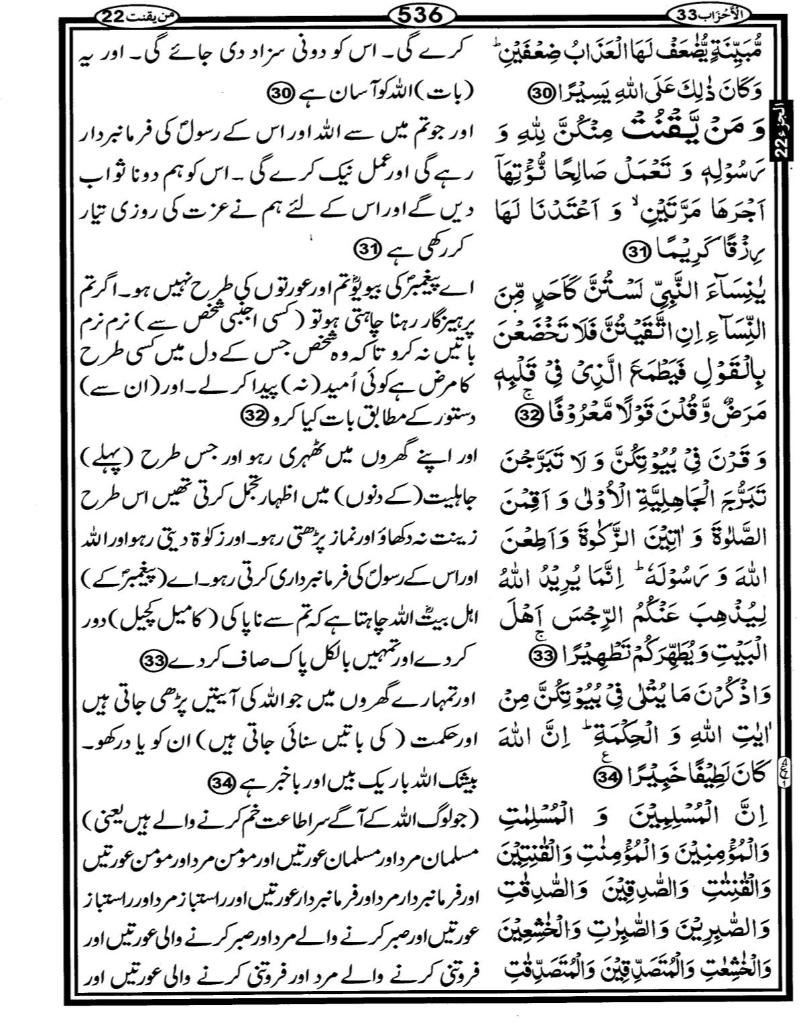 الأحزاب 33
536
من یقنت 22
الجزء 22
مُّبَيِّنَةٍ يُّضٰعَفْ لَهَا الْعَذَابُ ضِعْفَيْنِ ؕ
وَ كَانَ ذٰلِكَ عَلَى اللّٰهِ يَسِيْرًا 30
وَ مَنْ يَّقْنُتْ مِنْكُنَّ لِلّٰهِ وَ
رَسُوْلِهٖ وَ تَعْمَلْ صَالِحًا نُّؤْتِهَاۤ
اَجْرَهَا مَرَّتَيْنِ ۙ وَ اَعْتَدْنَا لَهَا
رِزْقًا كَرِيْمًا 31
يٰنِسَآءَ النَّبِيِّ لَسْتُنَّ كَاَحَدٍ مِّنَ
النِّسَآءِ اِنِ اتَّقَيْتُنَّ فَلَا تَخْضَعْنَ
بِالْقَوْلِ فَيَطْمَعَ الَّذِيْ فِيْ قَلْبِهٖ
مَرَضٌ وَّ قُلْنَ قَوْلًا مَّعْرُوْفًا ۚ 32
وَ قَرْنَ فِيْ بُيُوْتِكُنَّ وَ لَا تَبَرَّجْنَ
تَبَرُّجَ الْجَاهِلِيَّةِ الْاُوْلٰى وَ اَقِمْنَ
الصَّلٰوةَ وَ اٰتِيْنَ الزَّكٰوةَ وَ اَطِعْنَ
اللّٰهَ وَ رَسُوْلَهٗ ؕ اِنَّمَا يُرِيْدُ اللّٰهُ
لِيُذْهِبَ عَنْكُمُ الرِّجْسَ اَهْلَ
الْبَيْتِ وَ يُطَهِّرَكُمْ تَطْهِيْرًا ۚ 33
وَ اذْكُرْنَ مَا يُتْلٰى فِيْ بُيُوْتِكُنَّ مِنْ
اٰيٰتِ اللّٰهِ وَ الْحِكْمَةِ ؕ اِنَّ اللّٰهَ
كَانَ لَطِيْفًا خَبِيْرًا 34
اِنَّ الْمُسْلِمِيْنَ وَ الْمُسْلِمٰتِ
وَالْمُؤْمِنِيْنَ وَالْمُؤْمِنٰتِ وَالْقٰنِتِيْنَ
وَالْقٰنِتٰتِ وَالصّٰدِقِيْنَ وَالصّٰدِقٰتِ
وَالصّٰبِرِيْنَ وَالصّٰبِرٰتِ وَالْخٰشِعِيْنَ
وَالْخٰشِعٰتِ وَالْمُتَصَدِّقِيْنَ وَالْمُتَصَدِّقٰتِ
کرے گی۔ اس کو دونی سزا دی جائے گی۔ اور یہ
(بات) اللہ کو آسان ہے 30
اور جو تم میں سے اللہ اور اس کے رسولؐ کی فرمانبردار
رہے گی اور عمل نیک کرے گی ۔اس کو ہم دونا ثواب
دیں گے اور اس کے لئے ہم نے عزت کی روزی تیار
کر رکھی ہے 31
اے پیغمبرؐ کی بیویو تم اور عورتوں کی طرح نہیں ہو۔ اگر تم
پرہیزگار رہنا چاہتی ہو تو (کسی اجنبی شخص سے) نرم نرم
باتیں نہ کرو تاکہ وہ شخص جس کے دل میں کسی طرح
کا مرض ہے کوئی اُمید (نہ) پیدا کرلے۔ اور (ان سے)
دستور کے مطابق بات کیا کرو 32
اور اپنے گھروں میں ٹھہری رہو اور جس طرح (پہلے)
جاہلیت (کے دنوں) میں اظہار تجمل کرتی تھیں اس طرح
زینت نہ دکھاؤ اور نماز پڑھتی رہو۔ اور زکوٰۃ دیتی رہو اور اللہ
اور اس کے رسولؐ کی فرمانبرداری کرتی رہو۔ اے (پیغمبرؐ کے)
اہل بیتؓ اللہ چاہتا ہے کہ تم سے ناپاکی (کا میل کچیل) دور
کر دے اور تمہیں بالکل پاک صاف کر دے 33
اور تمہارے گھروں میں جو اللہ کی آیتیں پڑھی جاتی ہیں
اور حکمت (کی باتیں سنائی جاتی ہیں) ان کو یاد رکھو۔
بیشک اللہ باریک بیں اور باخبر ہے 34
(جو لوگ اللہ کے آگے سر اطاعت خم کرنے والے ہیں یعنی)
مسلمان مرد اور مسلمان عورتیں اور مومن مرد اور مومن عورتیں
اور فرمانبردار مرد اور فرمانبردار عورتیں اور راستباز مرد اور راستباز
عورتیں اور صبر کرنے والے مرد اور صبر کرنے والی عورتیں اور
فروتنی کرنے والے مرد اور فروتنی کرنے والی عورتیں اور